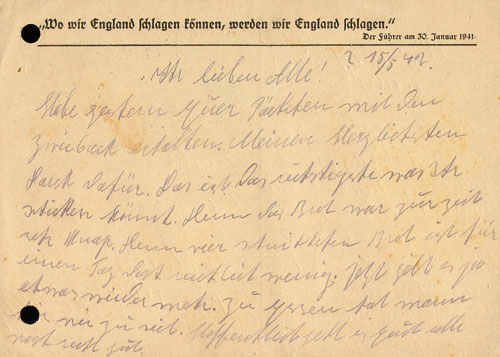 „Wo wir England schlagen können, werden wir England schlagen.“
Der Führer am 30. Januar 1941.
? 15/5 42.
Ihr lieben Alle!
Habe gestern Euer Päckchen mit den
Zwieback erhalten. Meinen Herzlichsten
Dank dafür. Das ist das richtigste was Ihr
schicken könnt. Denn das Brot war zur zeit
sehr Knap. Denn vier Brot ist für
einen Tag wenig. Jetzt gebt es ja
etwas wieder mehr. Zu essen
wir nie zu viel. Hoffentlich geht es euch alle
noch recht gut.